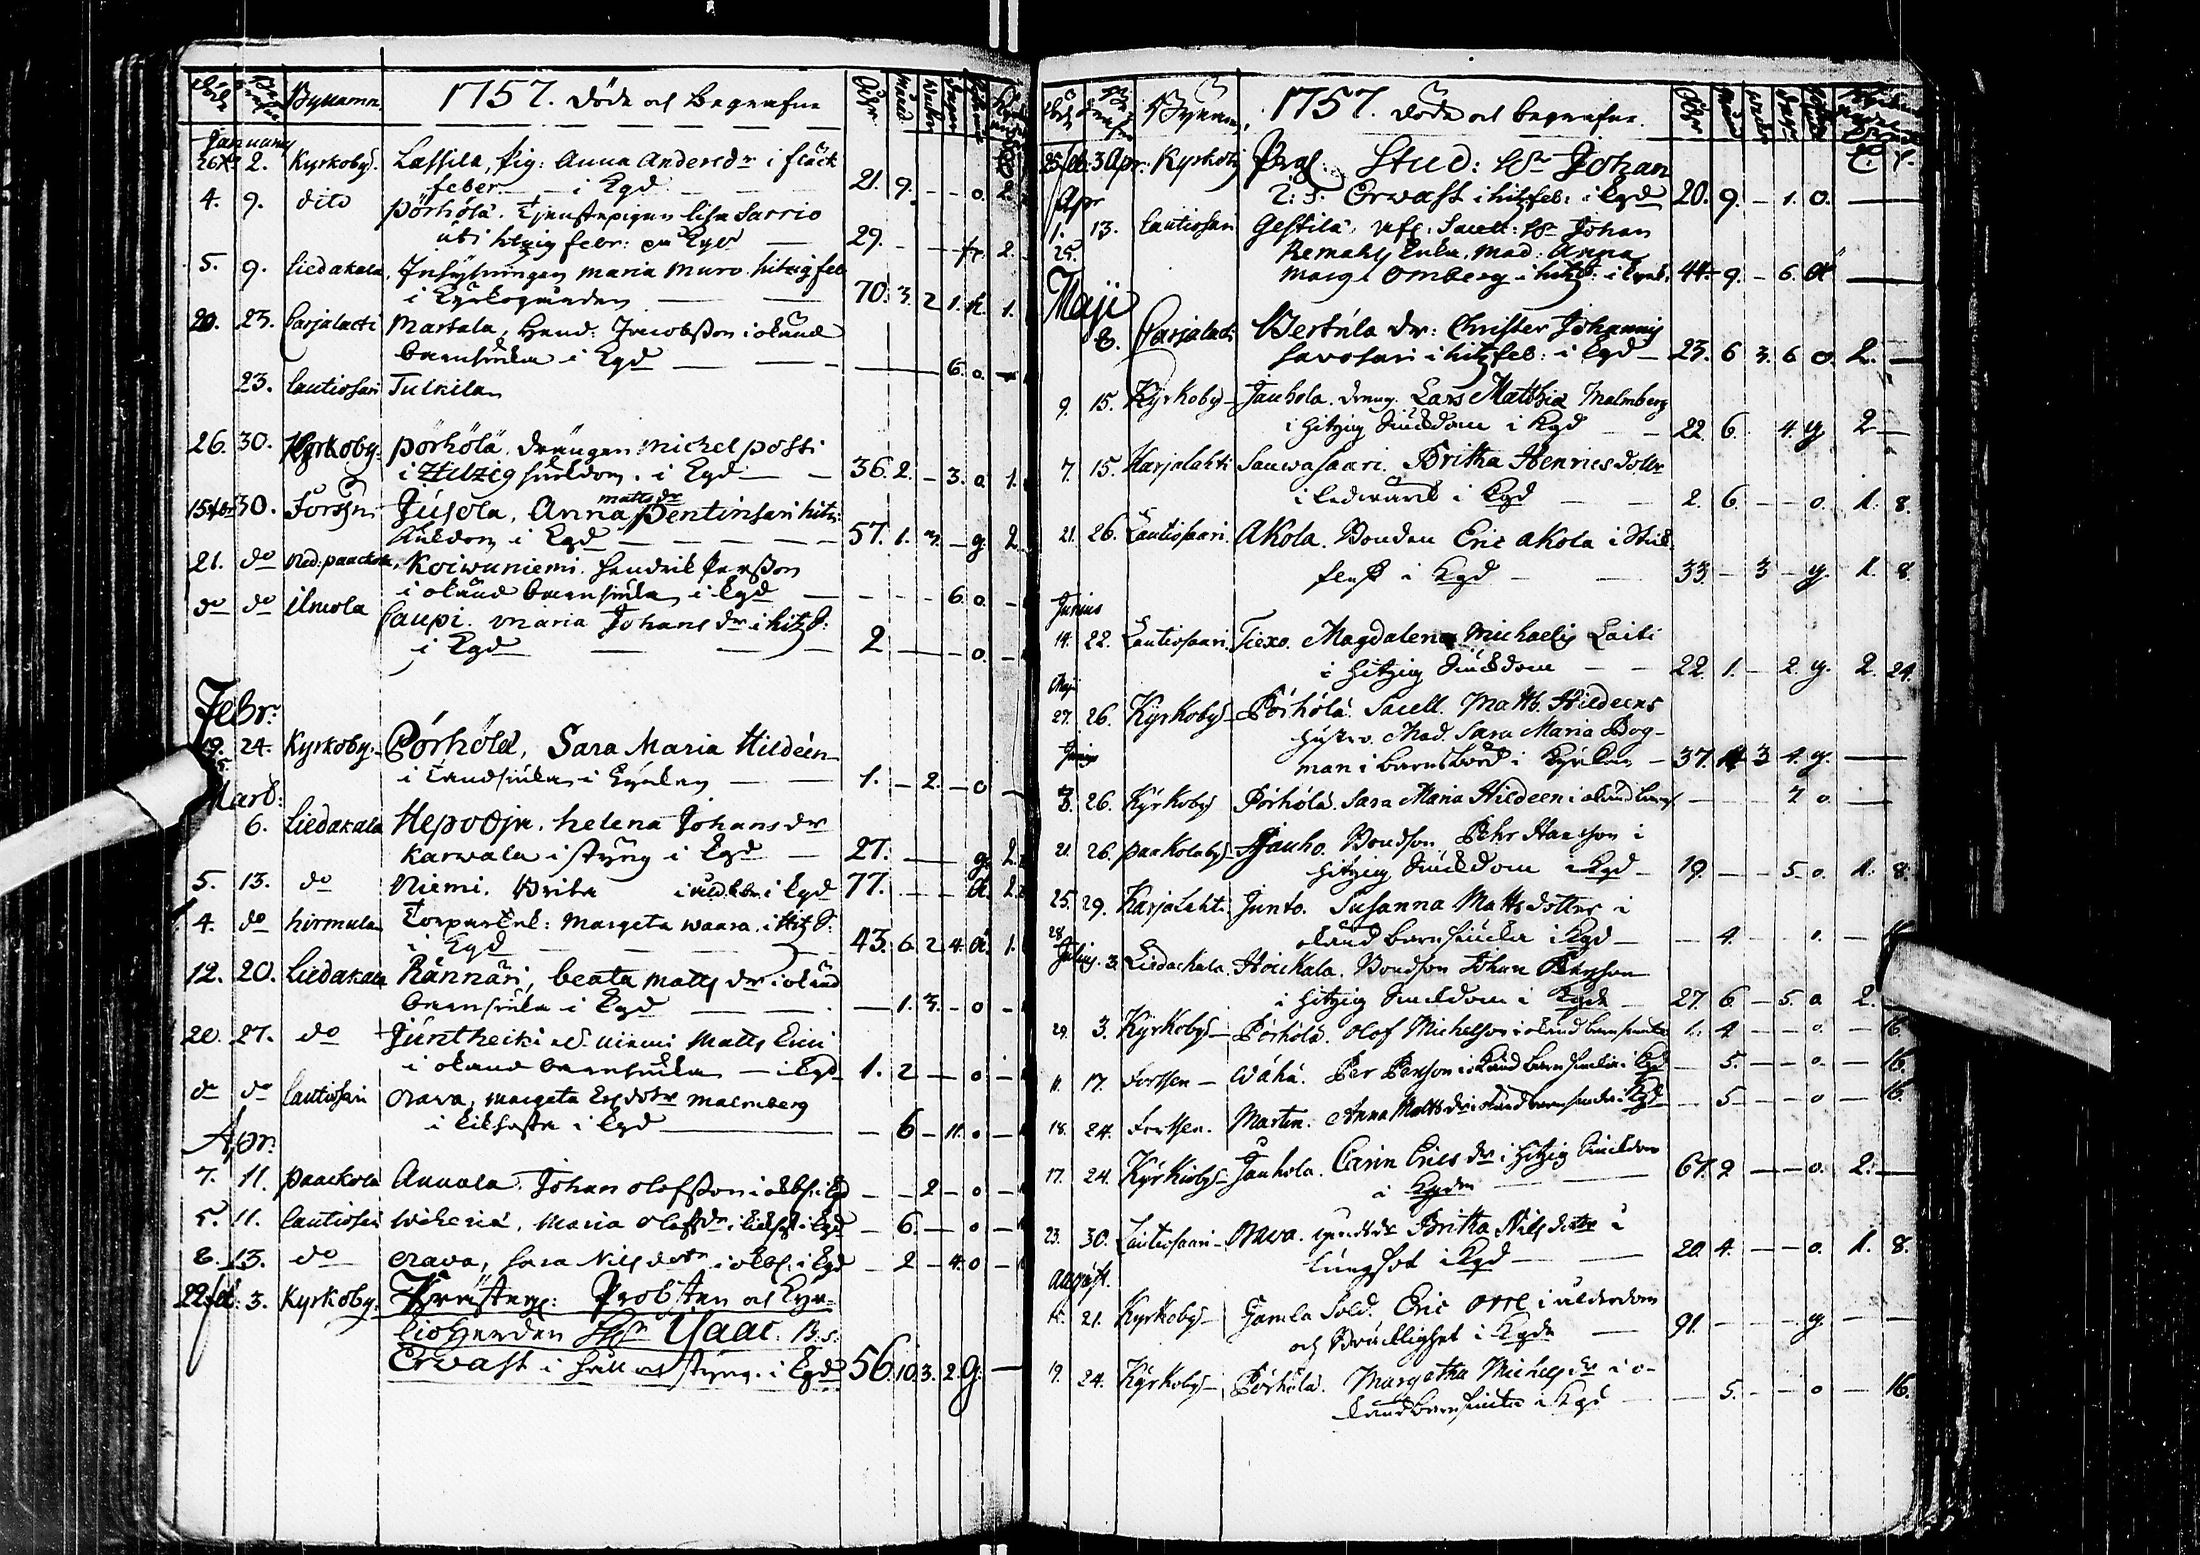 Döde Begrafne Bynamn. 1757. Döde och begrafne Åhr Månad Wecker Dagar
January
26 2. Kyrkoby. Lassila, pig: Anna Andersdr i fläck
feber i Kgd 21. 9. - - o. 2.
4. 9. dito Pörhölä. Tjenstepigan Lisa Sarrio
uti hitzig febr: på Kgd 29. - - 2.
5. 9. Liedakala, Inhysningen Maria Muro hitzig feb
i Kyrkogården 70. 3. 2 1. 1.
20. 23. Carjalacti Martala, Hend: Jacobsson i okänd
barnsiuka i Kgd 6. o.
23. Lautiosari Tulkila
26. 30. Kyrkoby. Pörhölä, drängen Michel Posti
i Hitzig siukdom. i Kgd 36. 2. - 3. o. 1.
15 30. Forssen. Jusola, Anna mattsdr Pentinsari hitz:
siukdom i Kgd 57. 1. 3. - g. 2.
21. do Ned: paackola, Koiwuniemi. Hendrik Persson
i okänd barnsiuka i Kgd 6. o.
do do Ilmola Caupi. Maria Johansdr i hitz S:
i Kgd 2 - - - o.
Febr:
19. 24. Kyrkoby. Pörhölä, Sara Maria Hildéen
i tandsiuka i Kyrkan 1. - 2. - o
Mart:
6. Liedakala Hepooja. Helena Johansdr
Karwala i styng i Kgd 27. g. 2.
5. 13. do Niemi. Brita i ålderd: i Kgd 77. 2.
4. do hirmula Torpare Enk: Margeta Waara. i Hitz S:
i Kgd 43. 6. 2. 4. 1.
12. 20. Liedakala Rännäri, beata Mattsdr i okänd
barnsiuka i Kgd - 1. 3. - o -
20. 27. do Juntheiki el. Niemi Matts Eric
i okänd barnsiuka i Kgd 1. 2 - - o -
do do Lautiosari Orava, Margeta Ersdotr Malmberg
i kikhosta i Kgd - 6 - 11. o -
Apr:
7. 11. Paackola Annala. Johan Olofsson i okbs. i Kgd - - 2 - o -
5. 11. Lautiosari Wikeriä, Maria Olofsdr i kikhost i Kgd - 6. - - o -
8. 13. do Orava, Sara Nilsdotr i okbs. i Kgd - 2 - 4. o -
22 feb: 3. Kyrkoby. Prästeg: Probsten och Kyr-
kioherden Hr Isaac. B:s:
Ervast i håll och styng. i Kgd 56. 10. 3. 2. g. -
Döde Begrafne Bynamn. 1757. Döde och begrafne. Åhr
25 feb. 3 Apr. Kyrkoby Prgl: Stud: Hr Johan
I: S. Ervast i hitz feb: i Kgd 20. 9. - 1. o. -
Apr
1. 13. Lautiosari Gestilä, Sacell: Hr Johan
25. Remahls Enka, Mad: Anna
Margt Ornberg i hitz: i Kyrk. 44. 9. - 6. -
Maji
8. Carjalacti Bertula dr: Christer Johannis
Savosari i hitz feb: i Kgd 23. 6 3. 6 o. 2. -
9. 15. Kyrkoby Jauhola. dreng. Lars Matthiæ Malmberg
i hitzig siukdom i Kgd 22. 6. 4. g. 2 -
7. 15. Karjalahti Sauwasaari. Britha Henricsdotter
i ledwärk i Kgd 2. 6. - - o. 1. 8.
21. 26. Lautiosaari. Akola. Bonden Eric Akola i Stick
fluss i Kgd 33. - 3 - g. 1. 8.
Junius
14. 22. Lautiosaari. Tiexo. Magdalena Michaelis Laiti
i hitzig siukdom 22. 1. - 2. g. 2. 24.
Maji
27. 26. Kyrkoby Pörhölä. Sacell. Matth. Hildeens
hustro. Mad. Sara Maria Bog-
Junij man i barnsbörd i Kyrkan 37. 3 4. g. -
8. 26. Kyrkoby Pörhölä. Sara Maria Hildeen i okänd barns. - - - 7 o. -
21 26. Paakolaby Jauho. Bondson Pehr Hansson i
hitzig siukdom i Kgd 19. - - 5. o. 1. 8.
25. 29. Karjalahti Junto. Susanna Mattsdotter i
28. okänd barnsiucka i Kgd - 4. - - o. - 16
Julius. 3. Liedackala. Hoickala. Bondson Johan Pehrsson
i hitzig siukdom i Kgd 27. 6 - 5. o 2.
29. 3. Kyrkoby Pörhölä. Olof Michelsson i okänd barnsiucka 1. 4. - - o. - 16.
11. 17. Forssen Wähä. Per Persson i okänd barnsiucka i Kgd - 5. - - o. - 16.
18. 24. Forssen. Martin. Anna Mattsdr i okänd barnsiucka i Kgd - 5 - - o - 16.
17. 24. Kyrkioby Jauhola. Carin Ericsdr i hitzig siuckdom
i Kgdn 67. 2 - - o. 2. -
23. 30. Lautiosaari Orava. Britha Nilsdotter i
lungsot i Kgd 20. 4. - - o. 1. 8.
August.
21. Kyrkoby Gamla Sold. Eric Orre i ålderdom
och bräcklighet i Kgdn 91. - - - g. - -
19. 24. Kyrkoby Pörhölä. Margetha Michelsdr i o-
känd barnsiucka i Kgd - 5. - - o - 16.